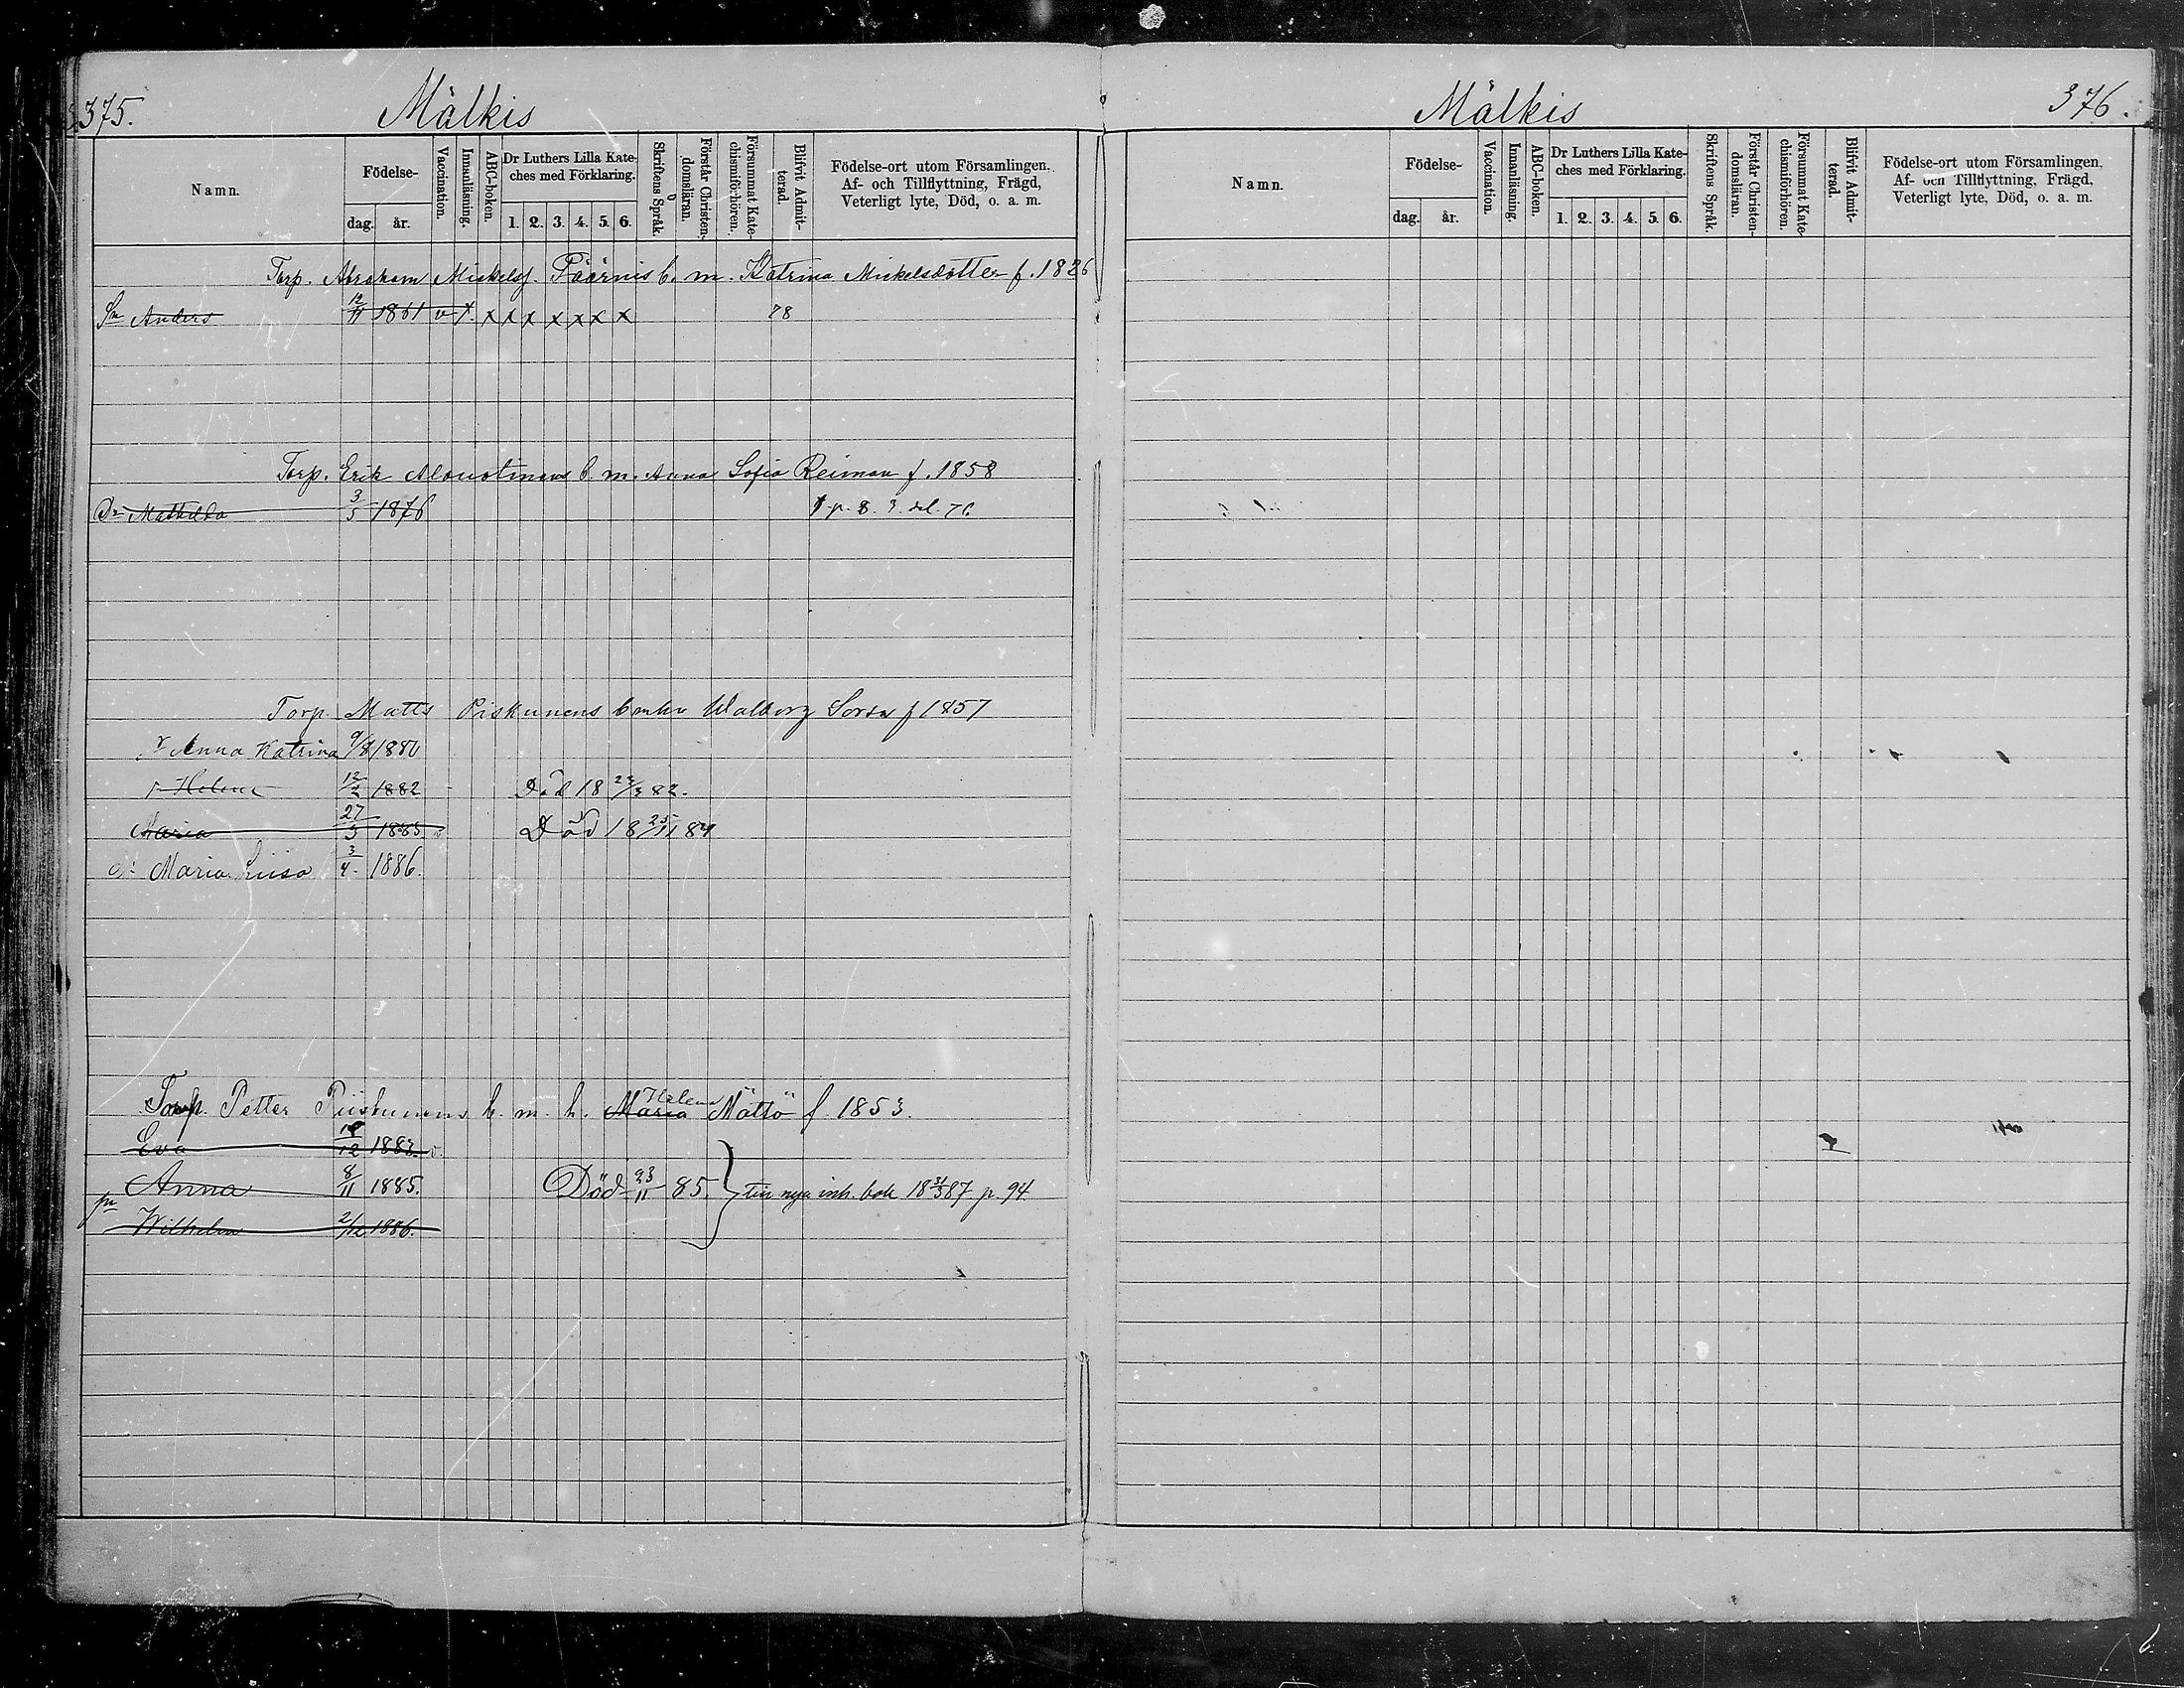 375.
Mälkis
Namn.
Födelse-
dag.
år.
Vaccination.
Innanläsning.
ABC-boken.
Dr Luthers Lilla Kate-
ches med Förklaring.
1. 2. 3. 4. 5. 6.
Skriftens Språk.
Förstår Christen-
domsläran.
Försummat Kate-
chismiförhören.
Blifvit Admit-
terad.
Födelse-ort utom Församlingen.
Af- och Tillflyttning, Frägd,
Veterligt lyte, Död, o. a. m.
Torp. Abraham Mickelsf. Päärnis b. m. Katrina Mickelsdotter f. 1826
Sn Anders 12/11 1861 v x x x x x x x x 78
Torp. Erik b. m. Anna Sofia Reiman f. 1858
Dr Mathilda 3/5 1876
Torp. Matts Piskunens Walborg f 1857
Anna Katrina 9/8 1880
Helena 12/2 1882 Död 18 23/3 82.
Maria 27/5 1883 Död 18 25/11 84
Maria Liisa 3/4 1886.
Torp. Petter Piiskunens h. m. h. Maria Helena Mättö f 1853.
Eva 1883
Anna 8/11 1885. Död 23/11 85. } till nya inh. bok 18 31/3 87 p. 94
Wilhelm 2/12 1886.
Mälkis
376.
Namn.
Födelse-
dag.
år.
Vaccination.
Innanläsning.
ABC-boken.
Dr Luthers Lilla Kate-
ches med Förklaring.
1. 2. 3. 4. 5. 6.
Skriftens Språk.
Förstår Christen-
domsläran.
Försummat Kate-
chismiförhören.
Blifvit Admit-
terad.
Födelse-ort utom Församlingen.
Af- och Tillflyttning, Frägd,
Veterligt lyte, Död, o. a. m.